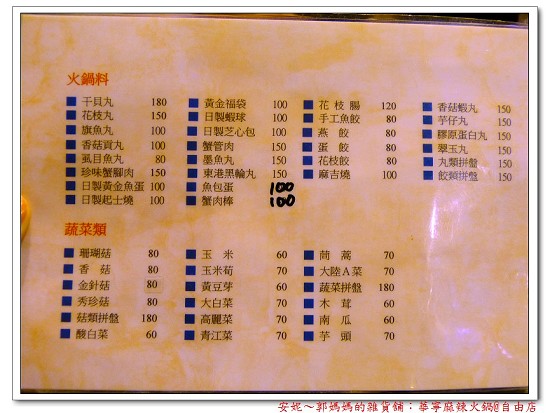 火鍋料
干貝丸 180
花枝丸 150
旗魚丸 100
香菇貢丸 100
虱目魚丸 80
珍味蟹腳肉 150
日製黃金魚蛋 100
日製起士燒 100
黃金福袋 100
日製蝦球 100
日製芝心包 100
蟹管肉 150
墨魚丸 150
東港黑輪丸 150
魚包蛋 100
蟹肉棒 100
花枝腸 120
手工魚餃 80
燕餃 80
蛋餃 80
花枝餃 80
麻吉燒 100
香菇蝦丸 150
芋仔丸 150
膠原蛋白丸 150
翠玉丸 150
丸類拼盤 150
餃類拼盤 150
蔬菜類
珊瑚菇 80
香菇 80
金針菇 80
秀珍菇 80
菇類拼盤 180
酸白菜 60
玉米 60
玉米荀 70
黃豆芽 60
大白菜 70
高麗菜 70
青江菜 70
茼蒿 70
大陸A菜 70
蔬菜拼盤 180
木茸 70
南瓜 60
芋頭 70
安妮～郭媽媽的雜貨舖：華寧麻辣火鍋@自由店